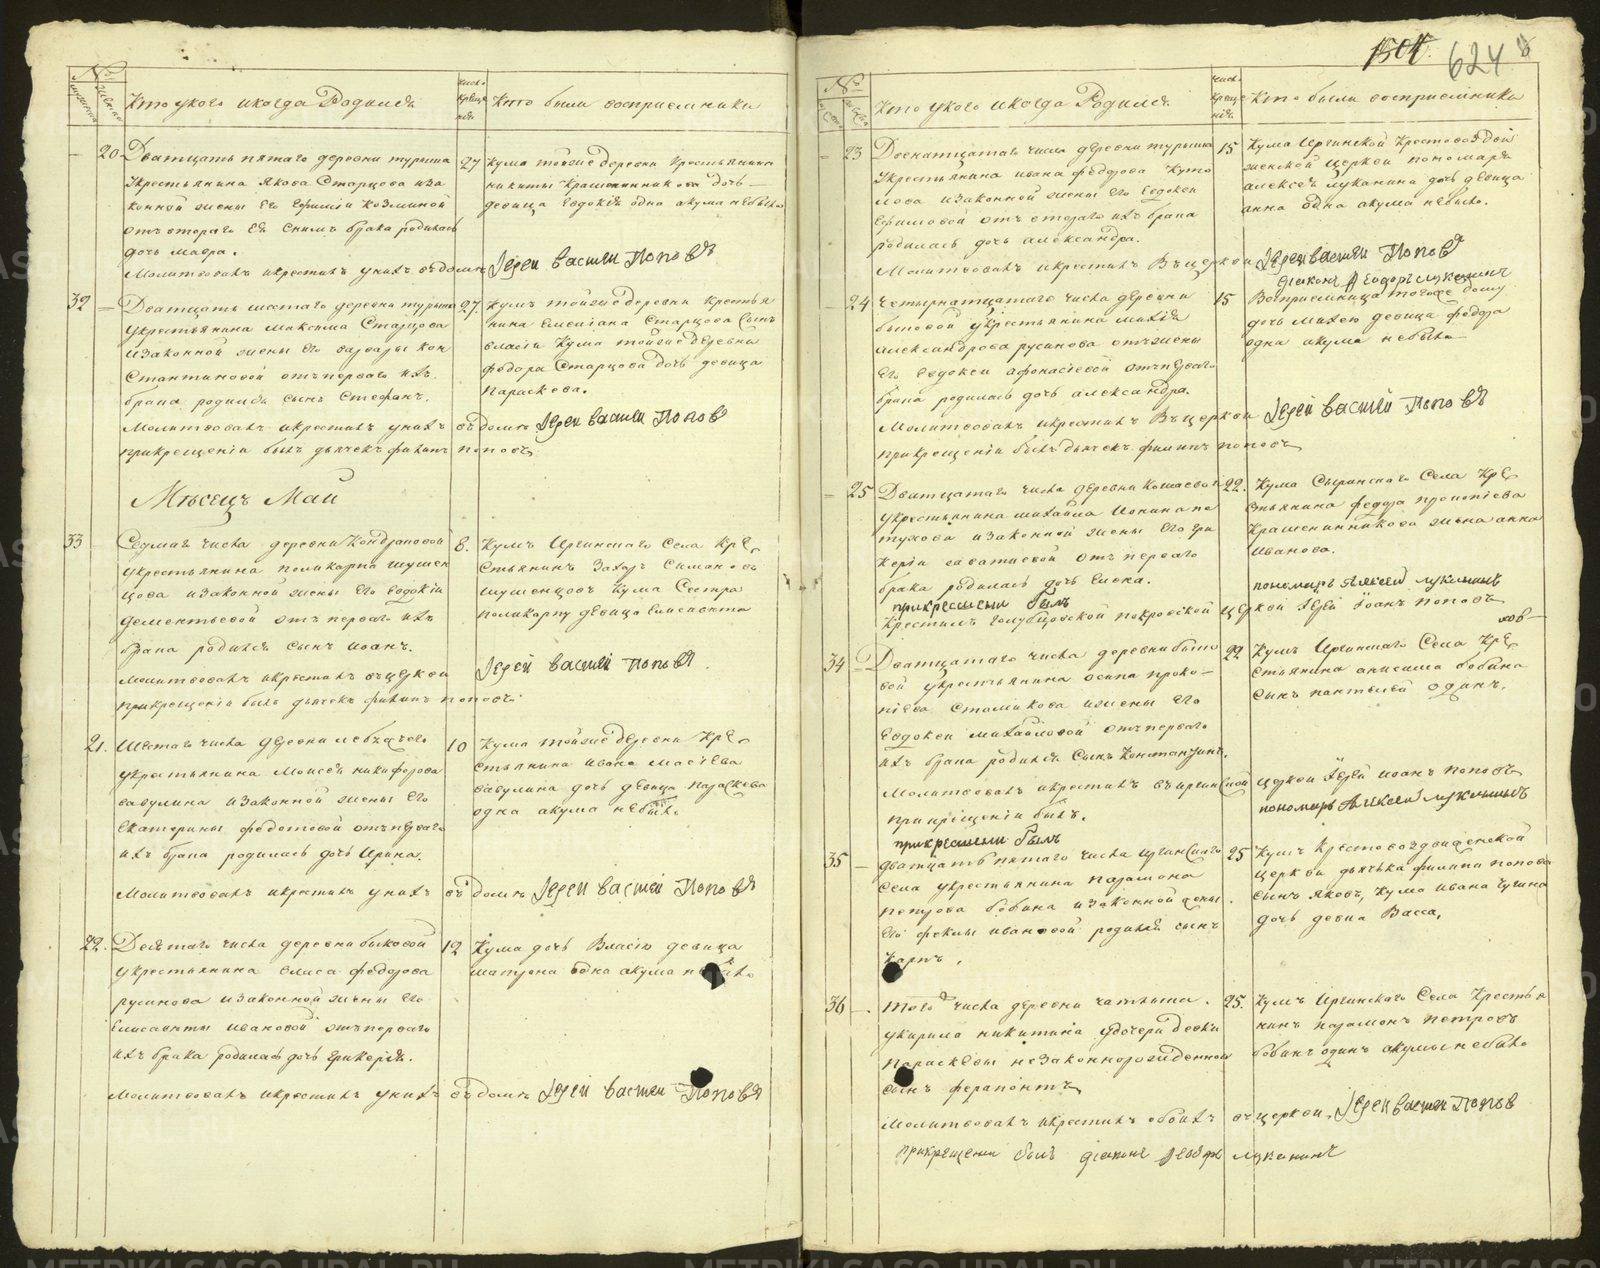 №
Кто укого икогда Родился
число крещения
Кто были восприемники
20
Дватцать пятаго деревни турыша
укрестьянина Якова Старцова иза
конной жены Его Ефимiи козминой
отъ втораго Ея Снимъ брака родилась
дочь мавра.
Молитвовалъ икрестилъ унихъ въ домѣ
27
Кума тойже деревни крестьянина
никиты крашенинникова дочь
девица Евдокiя одна акума небыло
Iерей василей Поповъ
32
Дватцать шестаго деревни турыша
укрестьянина максима Старцова
изаконной жены Его варвары кон
стантиновой отъ перваго ихъ
брака родился сынъ Стефанъ.
Молитвовалъ икрестилъ унихъ въ домѣ
прикрещенiи былъ дьячекъ филипъ поповъ
27
Кумъ тойже деревни крестья
нина Емелiана Старцова Сынъ
власiй Кума тойже деревни
федора Старцова дочь девица
параскева.
Iерей василей Поповъ
Мѣсецъ Май
33
Седмаго числа деревни Кондраповой
укрестьянина поликарпа шушен
цова изаконной жены Его Евдокiи
дементьевой отъ перваго ихъ
брака родился сынъ иванъ.
молитвовалъ икрестилъ въцеркви
прикрещенiи былъ дьячекъ филипъ поповъ
8.
Кумъ Иргинскаго Села Кре
стьянинъ Захаръ Симановъ
шушенцовъ Кума Сестра
поликарпу девица Елисавета
Iерей василей поповъ.
21.
Шестаго числа деревни лебяжего
укрестьянина Моисея никифорова
вавулина изаконной жены Его
Екатерины федотовой отъ перваго
ихъ брака родилась дочь Ирина.
Молитвовалъ икрестилъ унихъ въ домѣ
10
Кума тойже деревни Кре
стьянина ивана
вавулина дочь девица параскева
одна акума небыло
Iерей василей Поповъ
22.
Десятаго числа деревни быковой
укрестьянина Елиса федорова
русинова изаконной жены Его
Елисаветы ивановой отъ перваго
ихъ брака родилась дочь гликерiя.
Молитвовалъ икрестилъ унихъ въ домѣ
12
Кума дочь Власiю девица
матрона одна акума небыло
Iерей василей Поповъ
1504
624
№
Кто укого икогда Родился
число крещения
Кто были восприемники
23
Двенатцатаго числа деревни турыша
укрестьянина ивана федорова куто
лова изаконной жены Его Евдокеи
Ефимовой отъ втораго ихъ брака
родилась дочь александра.
Молитвовалъ икрестилъ Въцеркви
15
Кума Иргинской Крестовоздви
женской церкви пономаря
алексея луканина дочь девица
анна одна акума небыло.
Iерей василей Поповъ
дiаконъ Феодоръ луканинъ
24
Четырнатцатаго числа деревни
быковой укрестьянина
александрова русинова отъ жены
Его Евдокеи афонасiевой отъ перваго
брака родилась дочь александра.
Молитвовалъ икрестилъ Въцеркви
прикрещенiи былъ дьячекъ филипъ поповъ
15
Восприемница тогоже дому
дочь девица федора
одна акума небыло
Iерей василей Поповъ
25
Дватцатаго числа деревни
укрестьянина михайла
изаконной жены Его гли
керiи саватиевой отъ перваго
брака родилась дочь Елена.
прикрещенiи былъ
Крестилъ голубцовской покровской церкви Iерей Iоанъ поповъ
22.
Кума Сыринского Села Кре
стьянина федора прокопiева
Крашенинникова жена анна
иванова.
пономарь алексей луканинъ
34
Дватцатаго числа деревни быко
вой укрестьянина осипа проко
пiева Стомикова ижены Его
Евдокеи михайловой отъ перваго
ихъ брака родился Сынъ Константинъ.
Молитвовалъ икрестилъ въ иргинской церкви Iерей иоанъ поповъ
прикрещенiи былъ.
22
Кумъ Иргинскаго Села Кре
стьянина анисима бобина
сынъ пантелей одинъ.
пономарь Алексей луканинъ
прикрещенiи былъ
35
дватцать пятаго числа иргинскаго
Села укрестьянина парамона
петрова бобина изаконной жены
Его феклы ивановой родился сынъ
Карпъ.
25
Кумъ Крестовоздвиженской
церкви дьячька филипа попова
сынъ яковъ, Кума ивана чугина
дочь девица Васса.
36
того числа деревни чатлыша.
укирила никитина удочери девки
параскевы незаконнорожденной
сынъ ферапонтъ
Молитвовалъ икрестилъ обоихъ въцеркви.
прикрещенiи былъ дiаконъ Феодоръ луканинъ
25.
Кумъ Иргинскаго Села Крестья
нинъ парамонъ петровъ
бобинъ одинъ акумы небыло
Iерей василей Поповъ
METRIKI.GASO-URAL.RU